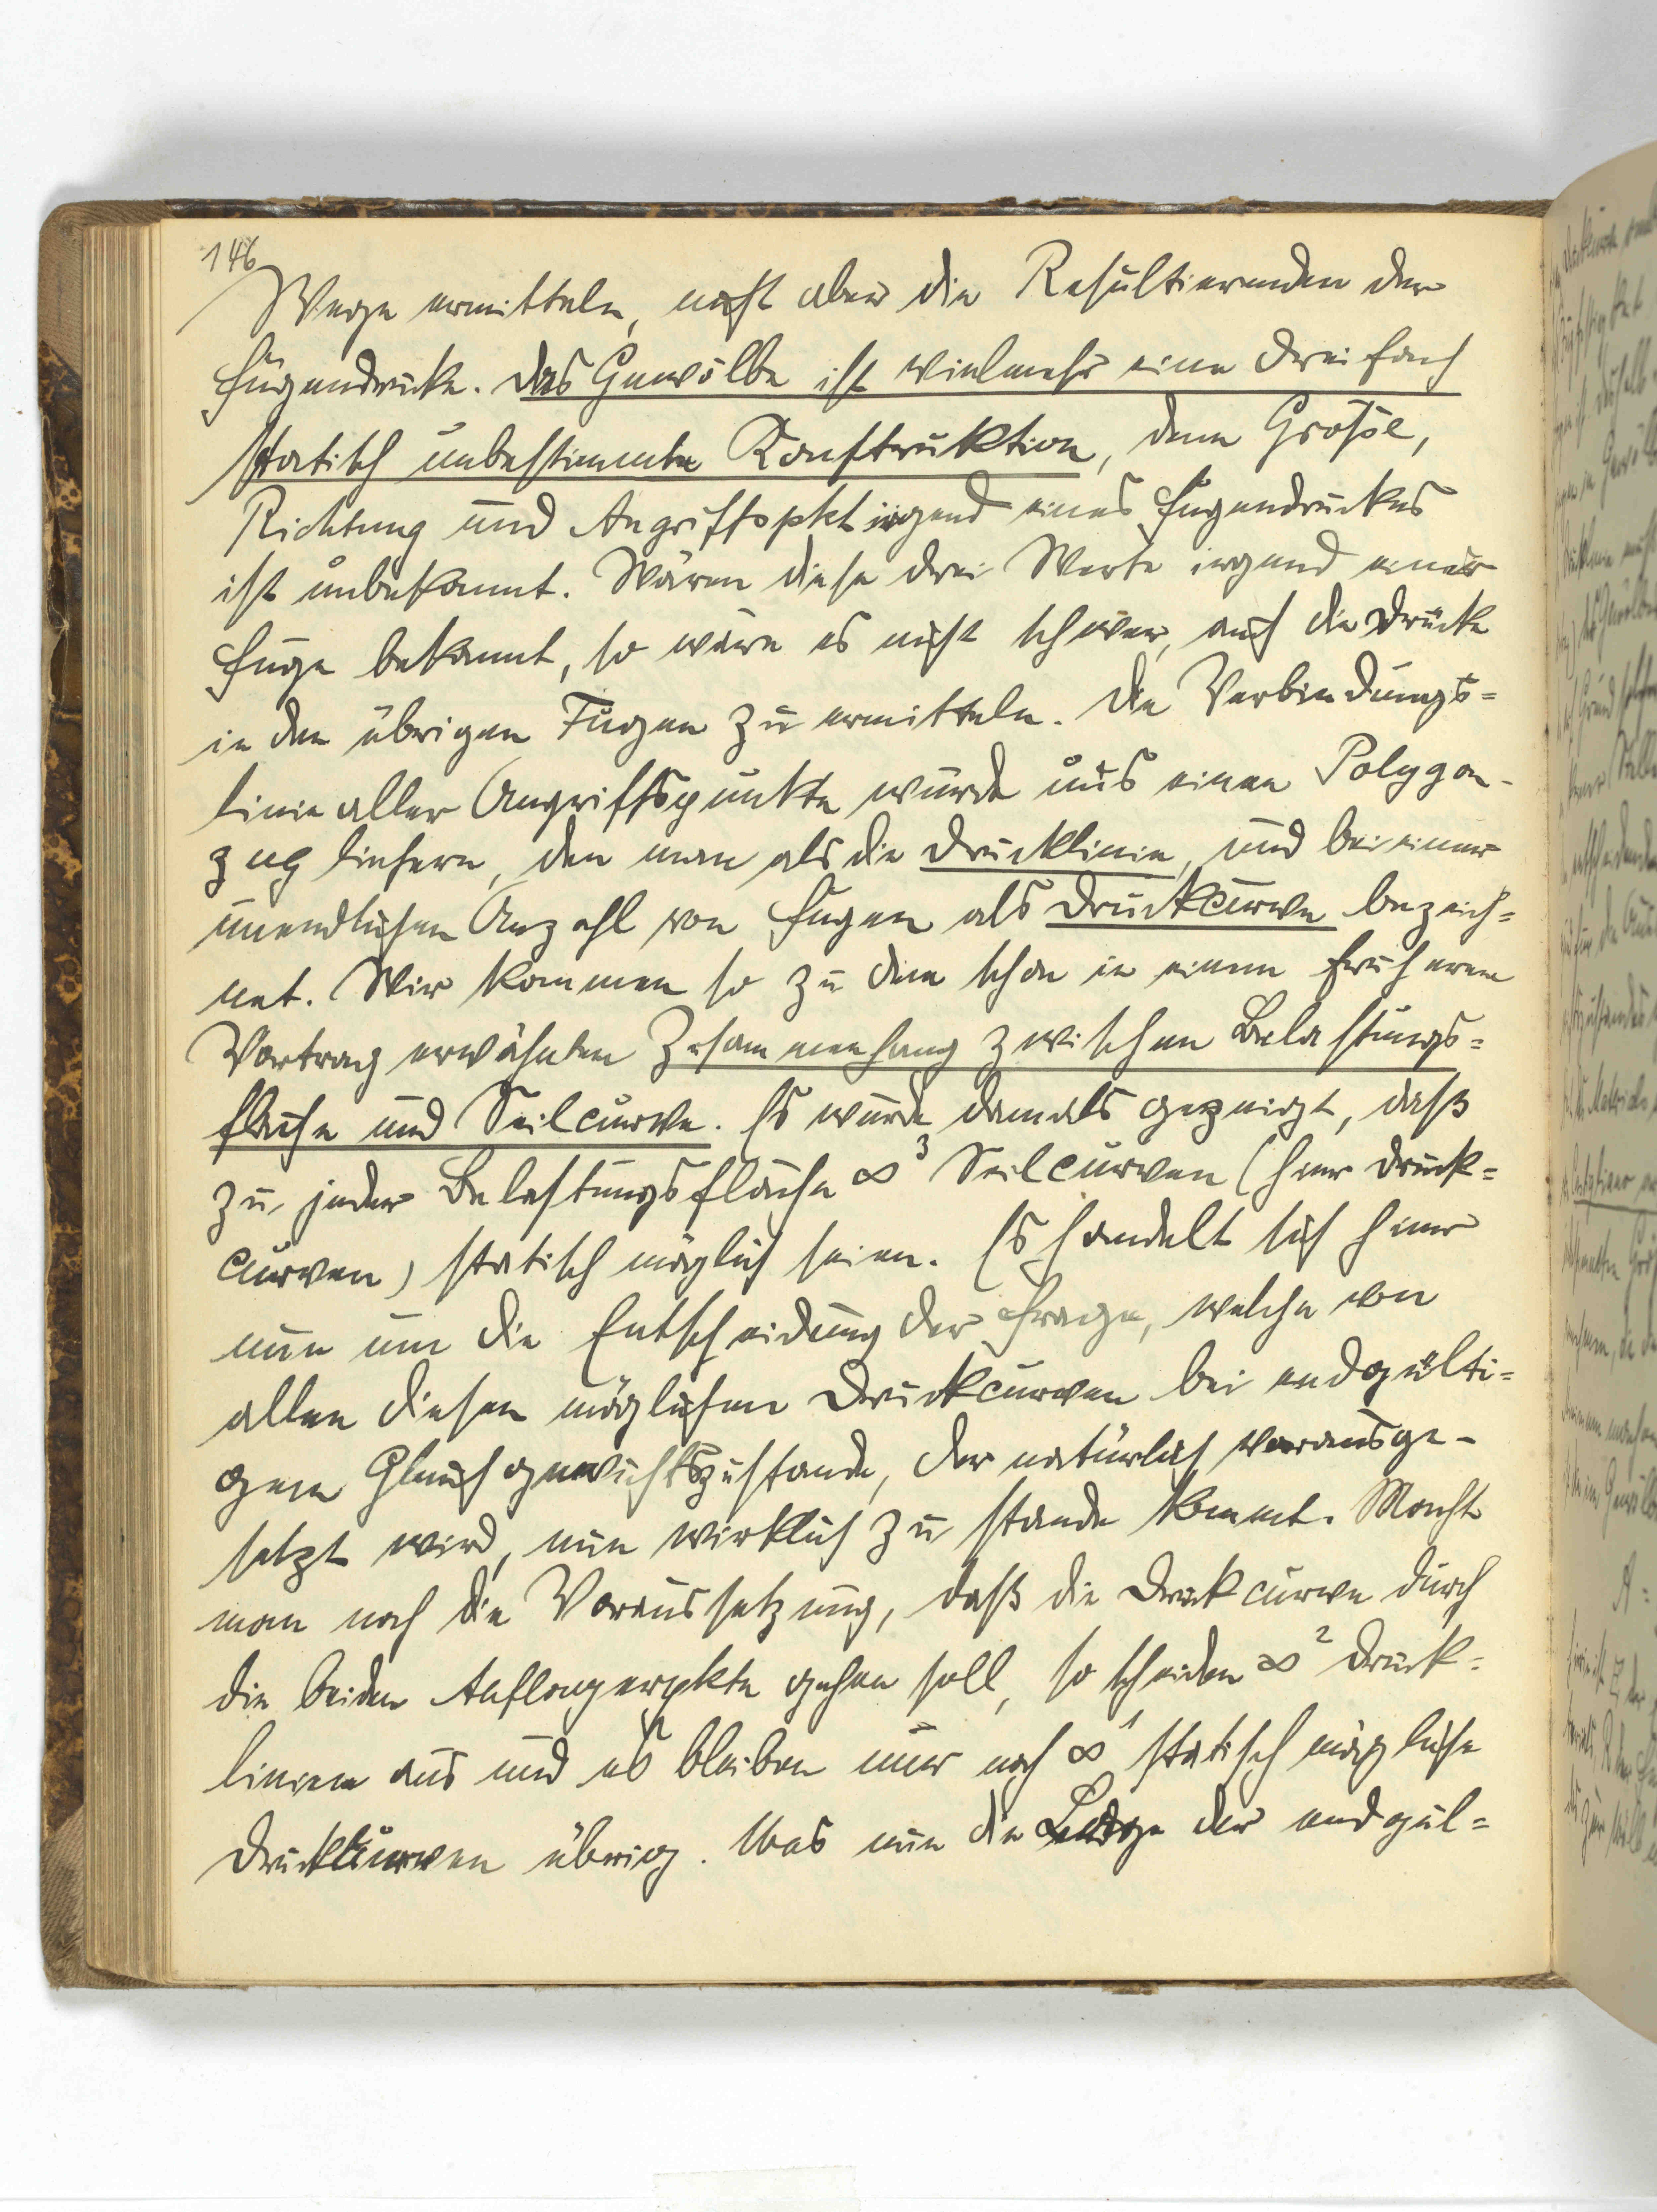 146
Wege ermitteln, nicht aber die Resultierenden der
Fugendrucke. Das Gewölbe ist vielmehr eine dreifach
statisch unbestimmte Konstruktion, denn Größe,
Richtung und Angriffspkt irgend eines Fugendruckes
ist unbekannt. Wären diese drei Werte irgend einer
Fuge bekannt, so wäre es nicht schwer, auch die Drücke
in den übrigen Fugen zu ermitteln. Die Verbindungs=
linie aller Angriffspunkte würde uns einen Polygon-
zug liefern, den man als die Drucklinie, und bei einer
unendlichen Anzahl von Fugen als Druckcurve bezeich=
net. Wir kommen so zu dem schon in einem früheren
Vortrag erwähnten Zusammenhang zwischen Belastungs=
fläche und Seilcurve. Es wurde damals gezeigt, daß
zu jeder Belastungsfläche ∞³ Seilcurven (hier Druck=
curven) statisch möglich seien. Es handelt sich hier
nun um die Entscheidung der Frage, welche von
allen diesen möglichen Druckcurven bei endgülti=
gem Gleichgewichtszustande, der natürlich vorausge-
setzt wird, nun wirklich zu stande kommt. Macht
man noch die Voraussetzung, daß die Druckcurve durch
die beiden Auflagerpkte gehen soll, so scheiden ∞² Druck=
linien aus und es bleiben nur noch ∞¹ statisch mögliche
Druckkurven übrig. Was nun die Lage der endgül=